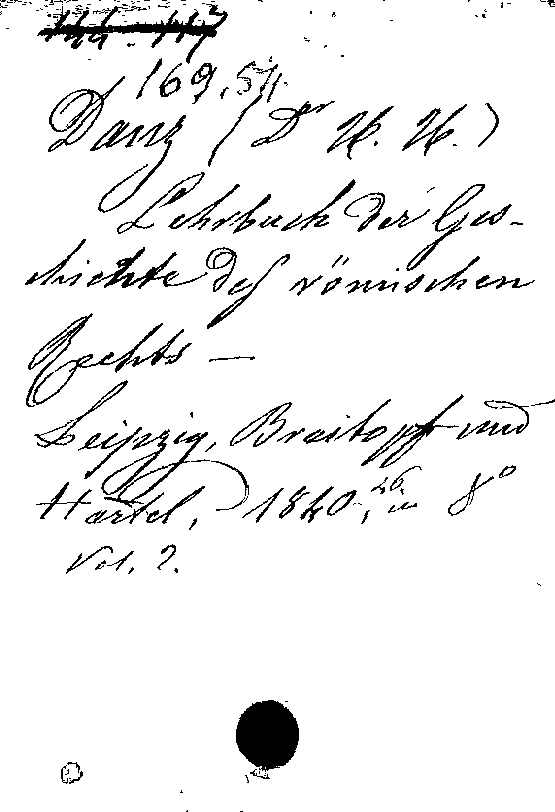 169.54.
Danz (Dr H. H.)
Lehrbuch der Ges-
chichte des römischen
Rechts —
Leipzig, Breitopff und
Härtel, 1840-46, in 8º
Vol. 2.